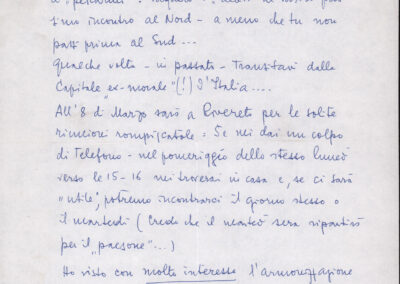 s'uno incontro al Nord - a meno che tu non
passi prima al Sud...
Qualche volta - in passato - Transitavi dalla
Capitale "ex-morale" (!) d'Italia....
All'8 di Marzo sarò a Rovereto per le solite
riunioni rompiscatole: Se mi dai un colpo
di Telefono - nel pomeriggio dello stesso lunedì
verso le 15-16 mi troverai in casa e, se ci sarà
"utile", potremo incontrarci il giorno stesso o
il martedì (Credo che il martedì sera ripartirò
per il "paesone"...)
Ho visto con molto interesse l'armonizzazione